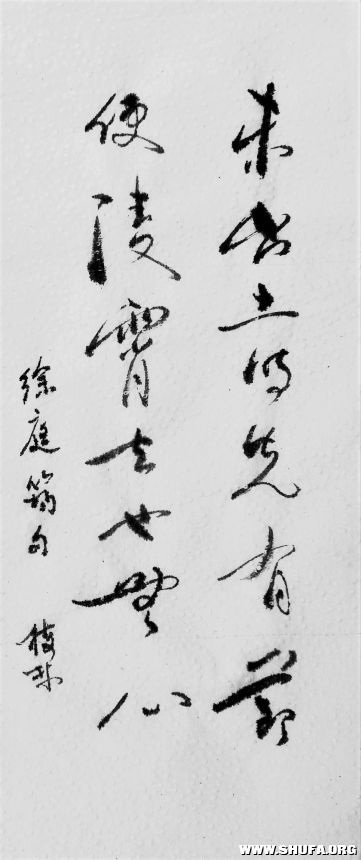 未出土時先有節
便陵霄去也無心
徐庭筠句
WWW.SHUFA.ORG